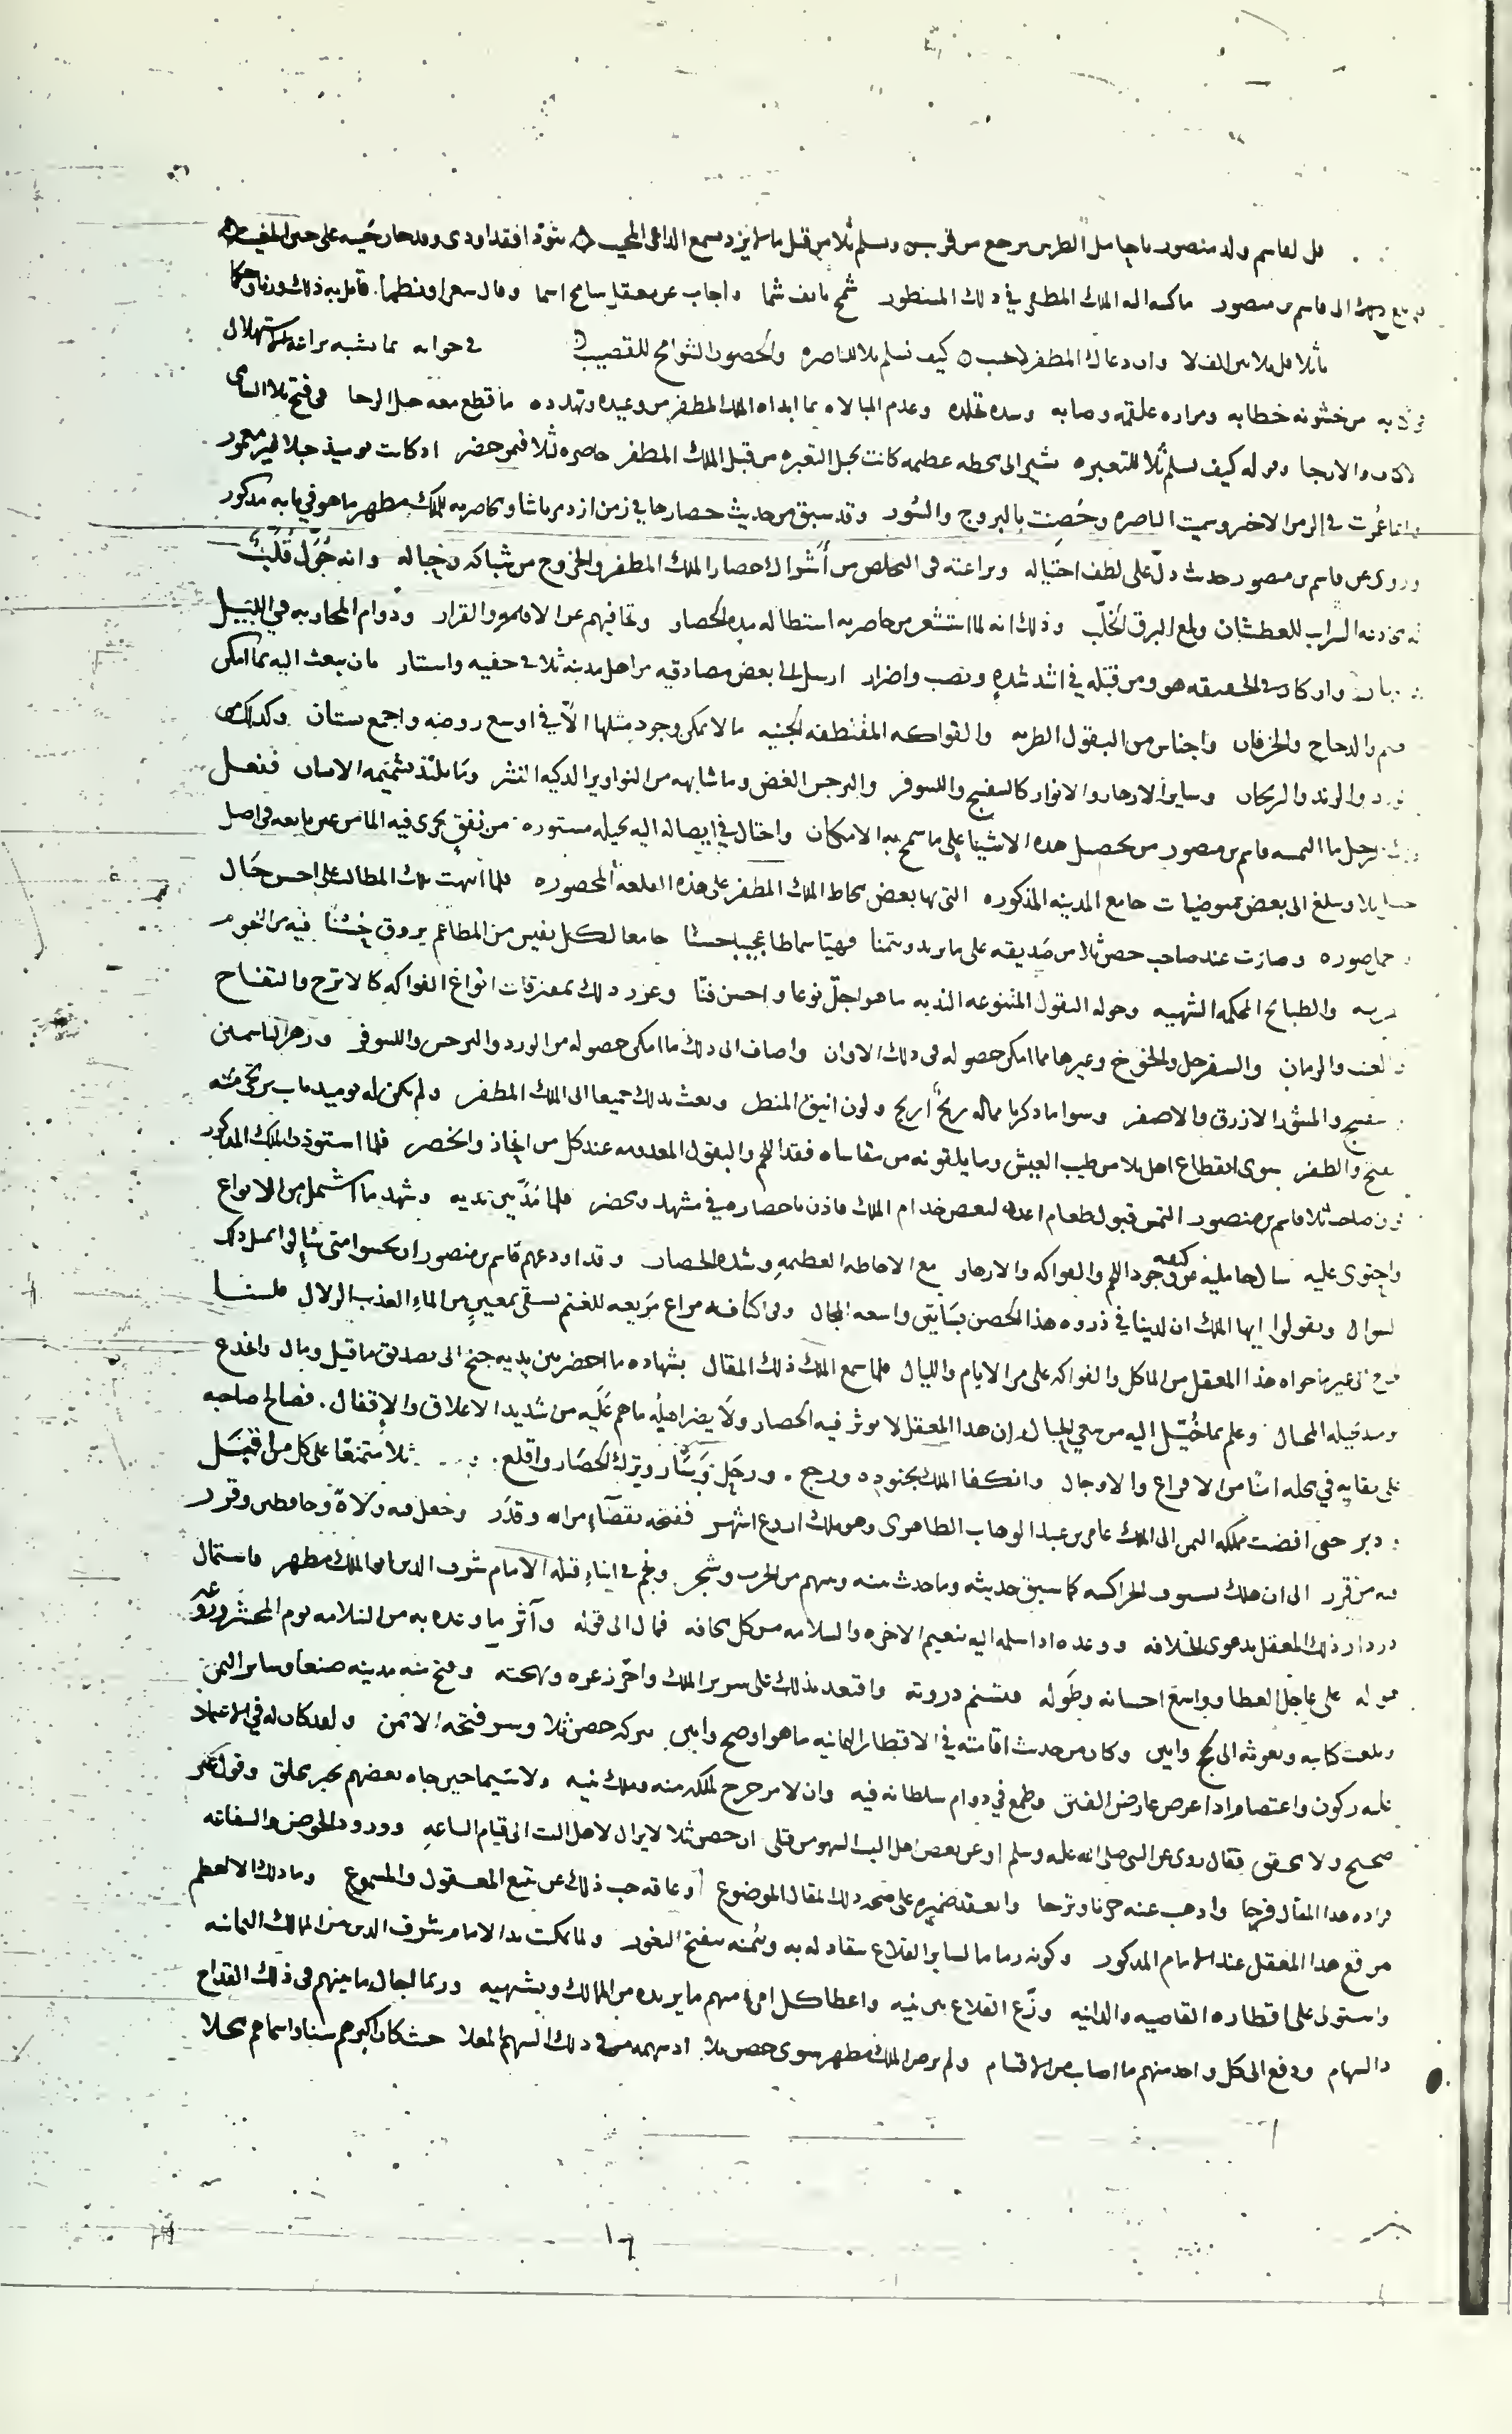 قل لقاسم ولد منصور يا جاهل الطريق يرجع من قريب وسلم ثلا من قبل ما يزيد يسمع الداعي المجيب
ذلك الى قاسم بن منصور ماكتبه اليه الملك المظفر في ذلك المسطور شمخ بانفه شمما واجاب عن معقل سامخ اسما وقال شعرا ونظما قابل به ذلك وزنا وحكما
يا ثلا قل ولا وان دعاك المظفر لا تجب كيف نسلم ثلا للناصره والحصون الشوامخ للقصيب في جوابه بما يشبه براعة الاستهلال
به من خشونه خطابه ومراره علقمه وصابه وشده تجلده وعدم المبالاه بما ابداه الملك المظفر من وعيده وتهدده ما قطع معه حبل الرجا في فتح ثلا
والارجا وقوله كيف نسلم ثلا للتعبره يشير الى محطه عظيمه كانت بجبل التعبره من قبل الملك المظفر حاصره لثلا فيمن حضر اذ كانت يوميذ جبلا غير معمور
وانما عمرت في الزمن الاخر وسميت الناصره وحصنت بالبروج والسور وقد سبق من حديث حصارها في زمن ازدمر باشا ومحاصرته للملك مطهر ما هو في بابه مذكور
وروي عن قاسم بن منصور حديث دل على لطف احتياله وبراعته في التخلص من أشواك حصار الملك المظفر والخروج من شباكه وحباله وانه حول قلب
السراب للعطشان ولمع البرق الخلب وذلك انه لما استشعر من محاصريه استطاله مده الحصار وتجافيهم عن الاقلاع والقرار ودوام المحاربه في الليل
وان كان في الحقيقه هو ومن قبله في اشد شده ونصب واضرار ارسل الى بعض مصادقيه من اهل مدينه ثلا في خفيه واستتار بان يبعث اليه بما امكن
والدجاج والخرفان واجناس من البقول الطريه والفواكه المقتطفه الجنيه ما لا يمكن وجود مثلها الا في اوسع روضه واجمع بستان وكذلك من
والرند والريحان وساير الازهار والانوار كالبنفسج واللينوفر والنرجس الغض وما شابهه من النواوير الذكيه النشر وما يلتذ بشميمه الانسان ففعل
الرجل ما التمسه قاسم بن منصور من تحصيل هذه الاشيا على ما سمح به الامكان واحتال في ايصاله اليه بحيله مستوره من نفق يجري فيه الما من عين نابعه في اصل
وسلغ الى بعض متوضيات جامع المدينه المذكوره التي بها بعض محاط الملك المظفر على هذه القلعه المحصوره فلما انتهت تلك المطالب على احسن حال
وصارت عند صاحب حصن ثلا من صديقه على ما يريد ويتمنا فهيا سماطا عجيبا حسنا جامعا لكل نفيس من المطاعم يروق حسنا فيه من اللحوم
والطبائخ المحكمه الشهيه وحوله البقول المتنوعه النديه ما هو اجل نوعا واحسن فنا وعزز ذلك بمفترقات انواع الفواكه كالاترج والتفاح
والعنب والرمان والسفرجل والخوخ وغيرها مما امكن حصوله في ذلك الاوان واضاف الى ذلك ما امكن حصوله من الورد والنرجس واللينوفر وزهر الياسمين
والمنثور الازرق والاصفر وسوا ما ذكرنا مما له ريح اريج ولون انيق المنظر وبعث بذلك جميعا الى الملك المظفر ولم يكن له يوميذ باب يرتجى منه
الفتح والظفر سوى انقطاع اهل ثلا من طيب العيش وما يلقونه من مقاساه فقد اللحم والبقول المعدومه عند كل من انجاز والخصر فلما استوذن الملك المذكور
صاحب ثلا قاسم بن منصور التمس قبول طعام اعده لبعض خدام الملك فاذن باحضاره في مشهد ومحضر فلما مد بين يديه وشهد ما اشتمل من الانواع
واحتوى عليه سال حامليه عن كيفيه وجود اللحم والفواكه والازهار مع الاحاطه العظيمه وشده الحصار وقد اودعهم قاسم بن منصور ان يجيبوا متى سالوا بمثل ذلك
السوال ويقولوا ايها الملك ان لدينا في ذروه هذا الحصن بساتين واسعه المجال وفي اكنافه مراع مريعه للغنم تسقى بمعين من الماء العذب الزلال فلسنا
غير ما حواه هذا المعقل من الماكل والفواكه على مر الايام والليال فلما سمع الملك ذلك المقال بشهاده ما احضر بين يديه جنح الى تصديق ما قيل ومال وانخدع
المحال وعلم بما خيل اليه من الخيال ان هذا المعقل لا يوثر فيه الحصار ولا يضر اهله ما هم عليه من شديد الاغلاق والاقفال فصالح صاحبه
على بقايه في محله امنا من الافزاع والاوجال وانكفا الملك بجنوده ورجع ورحل وسار وترك الحصار واقلع ثلا متمنعا على كل من اقبل
دبر حتى افضت مملكه اليمن الى الملك عامر بن عبد الوهاب الطاهري وهو ملك اروع اشهر ففتحه بقضاء من الله وقدر وجعل فيه ولاه وحافظين وقرر
فيه من قرر الى ان هلك بسيوف الجراكسه كما سبق حديثه وما حدث منه ومنهم من الحرب وشجر ونجم في اثناء قتله الامام شرف الدين ابو الملك مطهر فاستمال
دزدار ذلك المعقل بدعوى الخلافه ووعده اذا سلمه اليه بنعيم الاخره والسلامه من كل مخافه فمال الى قوله وآثر ما وعده به من السلامه يوم المحشر
على عاجل العطا وواسع احسانه وطوله فتسنم ذروته واقتعد بذلك على سرير الملك واحرز عزه وبهجته وفتح منه مدينه صنعا وساير اليمن
وبلغت كتايبه وبعوثه الى نجح وابين وكان من حديث اقامته في الاقطار اليمانيه ما هو اوضح وابين ببركه حصن ثلا ويسر فتحه الايمن ولقد كان له في الاعتماد
عليه ركون واعتصام اذا عرض عارض الفتن وطمع في دوام سلطانه فيه وان لا مزحزح لملكه منه وملك بنيه ولا سيما حين جاه بعضهم بخبر مختلق وقول غير
صحيح ولا محقق فقال روي عن النبي صلى الله عليه وسلم او عن بعض اهل البيت ان حصن ثلا لا يزال لاهل البيت الى قيام الساعه وورود الحوض والشفاعه
فزاده هذا المقال فرحا واذهب عنه حزنا وترحا وانعقد ضميره على صحه ذلك المقال الموضوع أو عاقه حب ذلك عن تتبع المعقول والمسموع وما ذلك الا لعظم
موقع هذا المعقل عند الامام المذكور وكونه زماما لساير القلاع تنقاد له به ويمنه بفتح الثغور ولما تمكنت يد الامام شرف الدين من الممالك اليمانيه
واستولى على اقطاره القاصيه والدانيه وزع القلاع بين بنيه واعطا كل امرء منهم ما يريده من الممالك ويشتهيه وربما اجال ما بينهم في ذلك القداح
والسهام ودفع الى كل واحد منهم ما اصاب من الاقسام ولم يرض الملك مطهر سوى حصن ثلا اذ سهمه من ذلك السهم المعلا حيث كان اكبرهم سنا واسماهم محلا